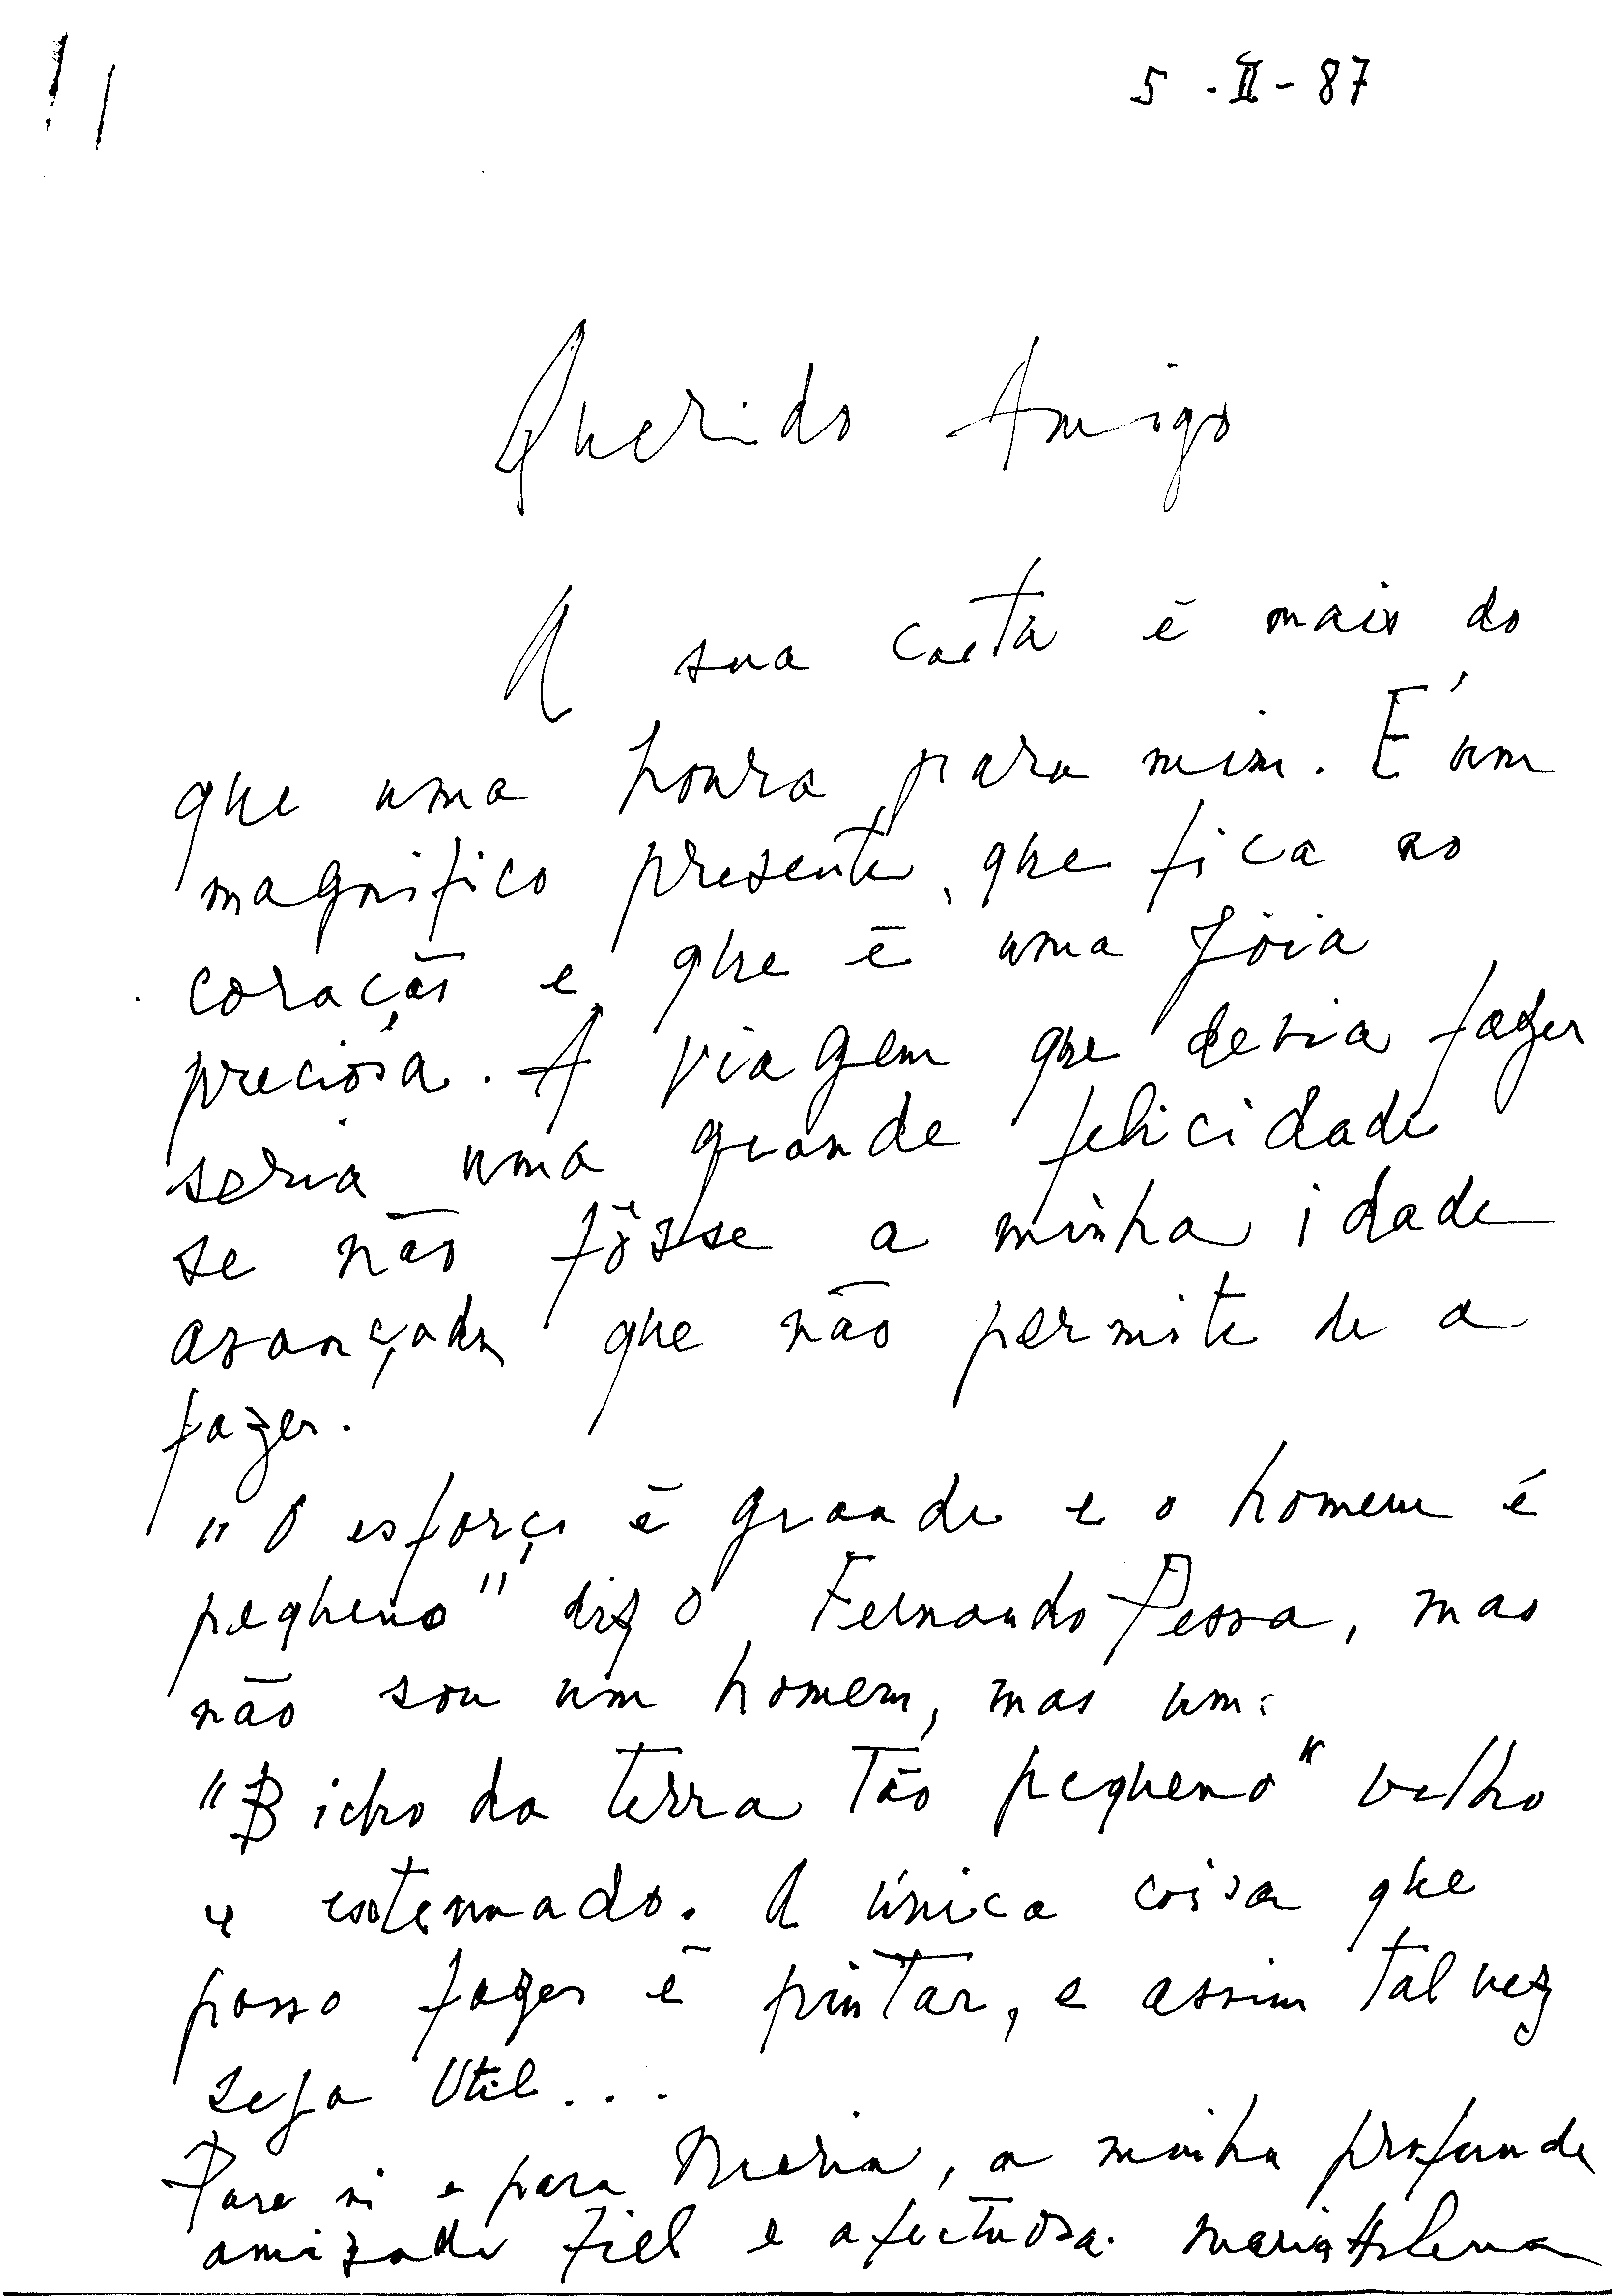 5 - II - 87
Querido Amigo
A sua carta é mais do
que uma honra para mim. É um
magnifico presente, que fica no
coração e que é uma Jóia
preciosa. A viagem que devia fazer
seria uma grande felicidade
se não fôsse a minha idade
avançada que não permite de a
fazer.
"O esforço é grande e o homem é
pequeno" diz o Fernando Pessoa, mas
não sou um homem, mas um:
"Bicho da terra tão pequeno" velho
e extenuado. A única coisa que
posso fazer é pintar, e assim talvez
seja Util...
Para si e para Maria, a minha profunda
amizade fiel e afectuosa. Maria Helena